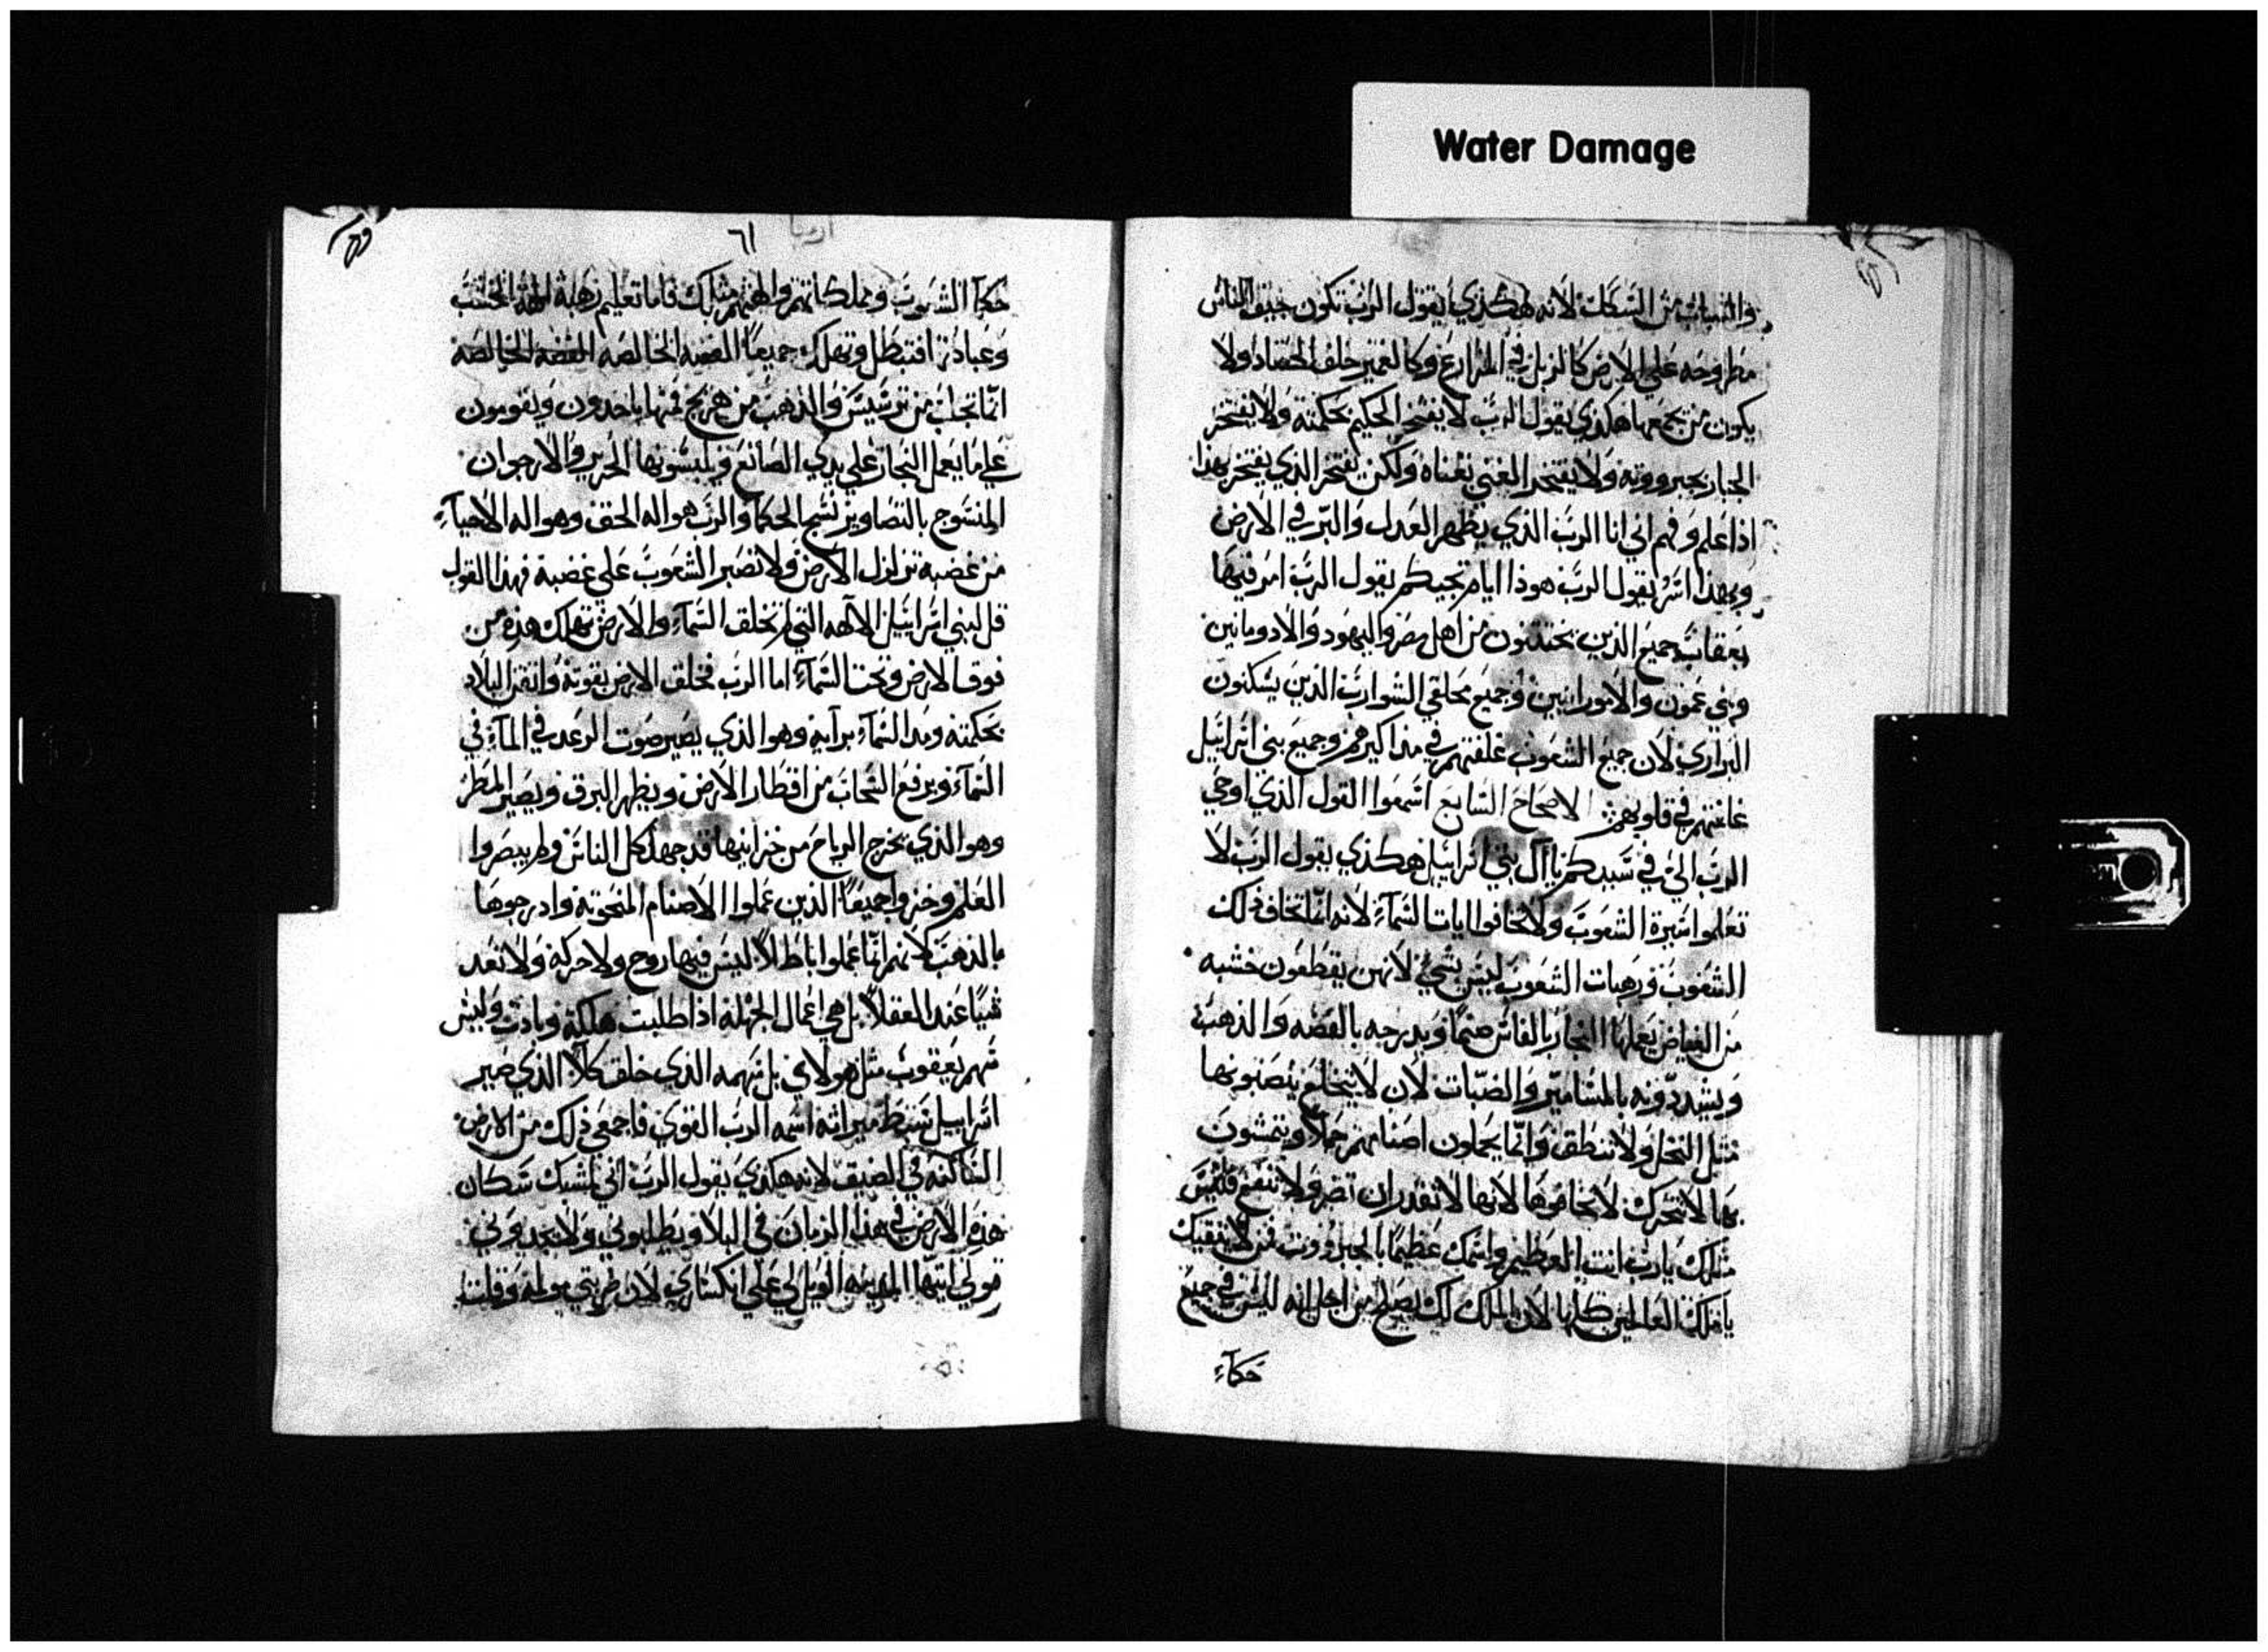 Water Damage
والشباب من السكك لانه هكذي يقول الرب تكون جيف الناس
مطروحه علي الارض كالزبل في المزارع وكالغمير خلف الحصاد ولا
يكون من يجمعها هكذي يقول الرب لا يفتخر الحكيم بحكمته ولا يفتخر
الجبار بجبرووته ولا يفتخر الغني بغناه ولكن يفتخر الذي يفتخر بهذا
اذا علم وفهم اني انا الرب الذي يظهر العدل والبر في الارض
وبهذا اسر يقول الرب هوذا ايام تجيكم يقول الرب امر فيها
بعقاب جميع الذين يختتنون من اهل مصر واليهود والادومانيين
وبني عمون والامورانيين وجميع محلقي الشوارب الذين يسكنون
البراري لان جميع الشعوب غلفتهم في مذاكيرهم وجميع بني اسراييل
غلفتهم في قلوبهم الاصحاح السابع اسمعوا القول الذي اوحي
الرب الي في سببكم يا آل بني اسراييل هكذي يقول الرب لا
تعلموا سيرة الشعوب ولا تخافوا ايات السمآء لانه انما تخاف ذلك
الشعوب ورهبات الشعوب ليس بشي لانهن يقطعون خشبه
من الغياض يعملها النجار بالفاس صنما ويدرجه بالفضه والذهب
ويشددونه بالمسامير والضبات لان لا يتخلع ينصبونها
مثل النخل ولا تنطق وانما يحملون اصنامهم حملا ويمشون
بها لا تتحرك لا تخافوها لانها لا تقدر ان تضر ولا تنفع فليس
مثلك يارب انت العظيم واسمك عظيما بالجبرووت من لا يتقيك
يا ملك العالمين كلها لان الملك لك يصلح من اجل انه ليس في جميع
حكمآء
٦١
حكمآ الشعوب ومملكاتهم والهتهم مثلك فاما تعليم رهبة الهة الخشب
وعبادتها فتبطل وتهلك جميعا الفضه الخالصه الفضه الخالصه
انما تجلب من ترشيش والذهب من هريج فمنها ياخدون ويقومون
علي ما يعمل النجار علي يدي الصانع ويلبسونها الحرير والارجوان
المنسوج بالتصاوير نسج الحكمآ والرب هو اله الحق وهو اله الاحيآء
من غضبة تزلزل الارض ولا تصبر الشعوب علي غضبة فهذا القول
قل لبني اسراييل الآلهه التي لم تخلق السمآء والارض تهلك هذه من
فوق الارض وتحت السمآء اما الرب فخلق الارض بقوته واتقن البلاد
بحكمته ومد السمآء برآيه وهو الذي يصير صوت الرعد في المآء في
السمآء ويرفع السحاب من اقطار الارض ويظهر البرق ويصير المطر
وهو الذي يخرج الرياح من خزاينها قد جهل كل الناس ولم يبصروا
العلم وخزوا جميعا الذين عملوا الاصنام المنحوتة وادرجوها
بالذهب لانهم انما عملوا اباطلا ليس فيها روح ولا حركه ولا تعد
شيا عند العقلا بل هي اعمال الجهله اذا طلبت هلكة وبادت وليس
سهم يعقوب مثل هولاي بل سهمه الذي خلق كلا الذي صير
اسراييل سبط ميراثه اسمه الرب القوي فاجمعي ذلك من الارض
الساكنه في الضيق لانه هكذي يقول الرب اني مشبك سكان
هذه الارض في هذا الزمان في البلا ويطلبوني ولا يجدوني
قولي ايتها المدينه الويل لي علي انكساري لان ضربتي مولمه وقلت